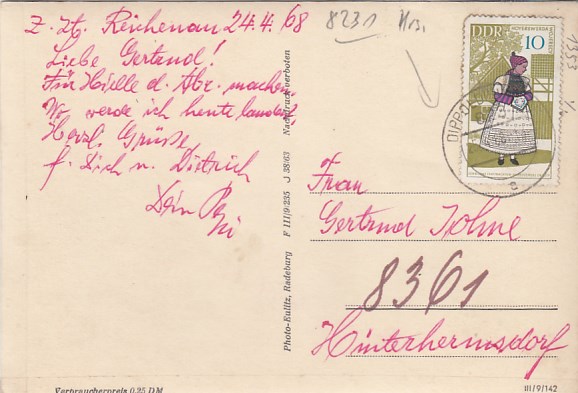 Z. Zt. Reichenau 24.4.68
Liebe Gertrud!
Für Hiolle d. Abr. machen.
Wo werde ich heute landen?
Herzl. Grüße
f. Dich u. Dietrich
Dein
Photo-Eulitz, Radeburg F III/9/235 J 38/63 Nachdruck verboten
Verbraucherpreis 0,25 DM
8231 Krs.
DDR
10
DIPPO
c
1353
Frau
Gertrud Johne
8361
Hinterhermsdorf
III/9/142